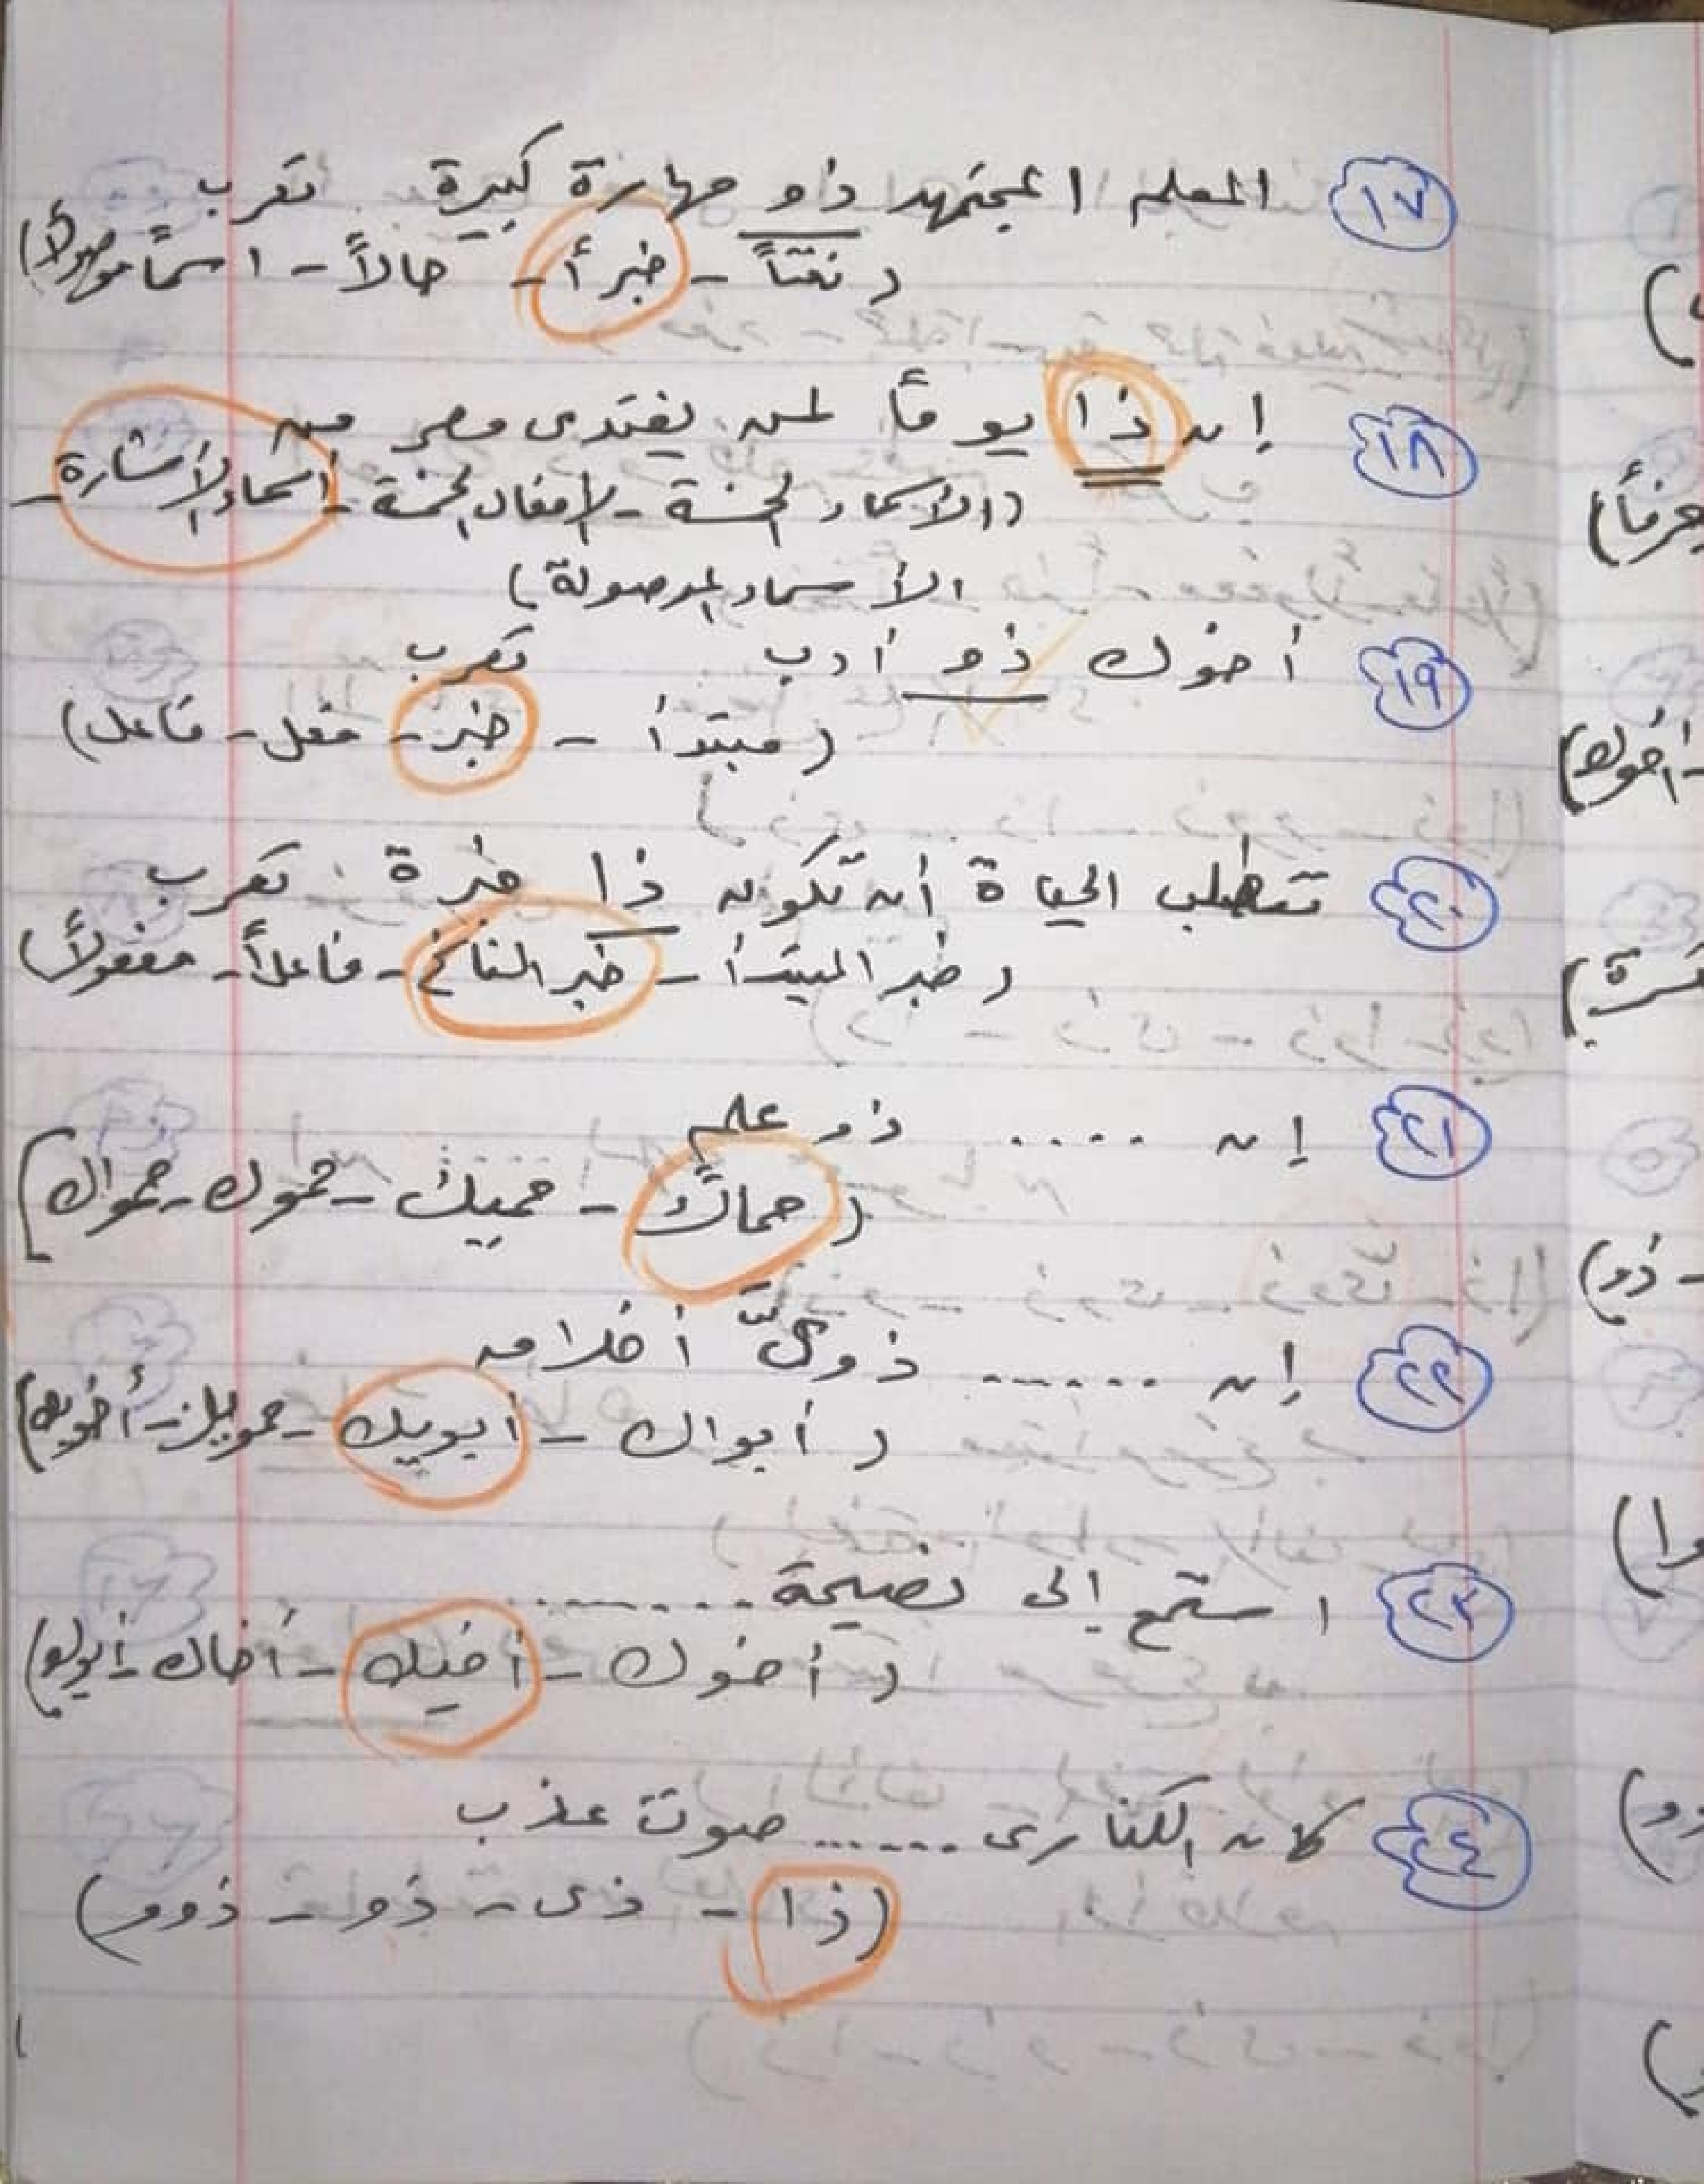 ١٧ المعلم المجتهد ذو مهارة كبيرة تعرب
( نعتاً - خبراً - حالاً - اسماً موصولاً )
١٨ إن ذا يوماً لمن يفتدى مصر من
( الأسماء الخمسة - الأفعال الخمسة - أسماء الإشارة -
الأسماء الموصولة )
١٩ أخوك ذو أدب تعرب
( مبتدأ - خبر - فعل - فاعل )
٢٠ تتطلب الحياة أن تكون ذا خبرة تعرب
( خبر المبتدأ - خبر الناسخ - فاعلاً - مفعولاً )
٢١ إن .... ذو علم
( حماك - حميك - حموك - حمواك )
٢٢ إن ...... ذوى أخلاق
( أبواك - أبويك - حمويك - أخوك )
٢٣ استمع إلى نصيحة ........
( أخوك - أخيك - أخاك - أبوك )
٢٤ كان الكنارى ...... صوت عذب
( ذا - ذى - ذو - ذوو )